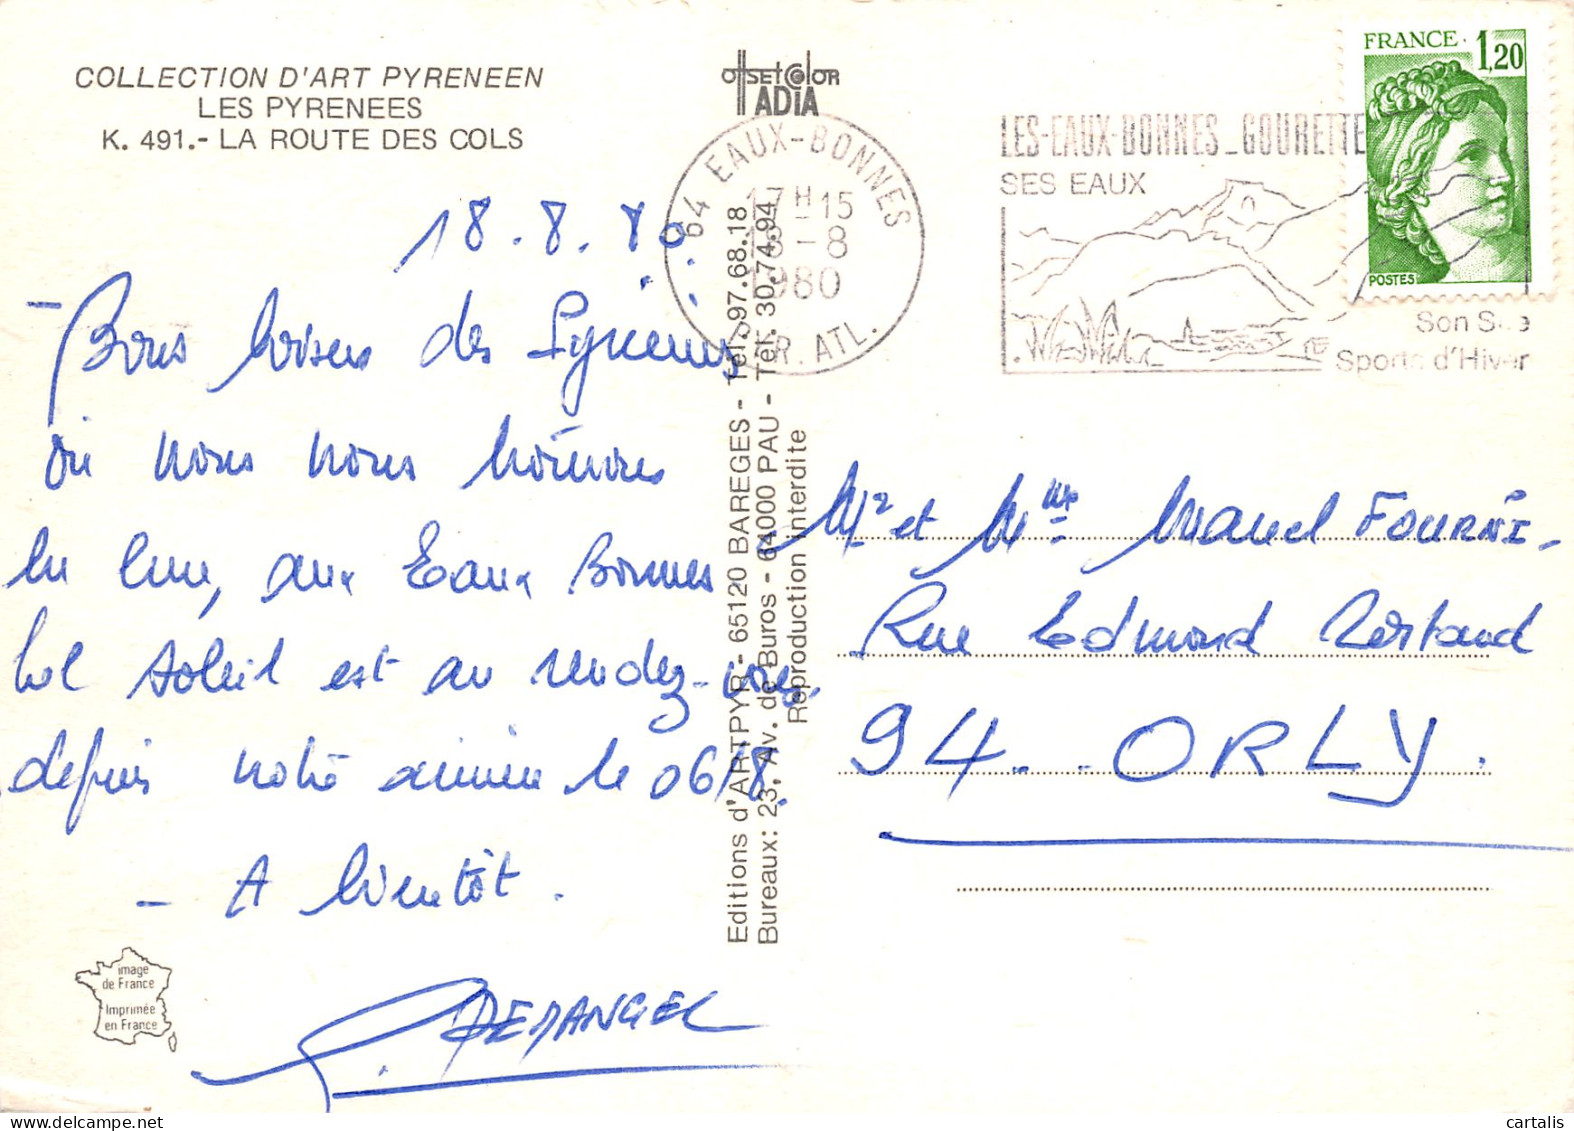 COLLECTION D'ART PYRENEEN
LES PYRENEES
K. 491.- LA ROUTE DES COLS
18.8.80
Bons baisers des Pyrénées
où nous nous trouvons
aux Eaux Bonnes
soleil est au rendez-vous
depuis notre arrivée le 06/8.
- A bientôt.
DEMANGEL
image
de France
Imprimée
en France
offset color
ADIA
Editions d'ARTPYR - 65120 BAREGES - Tél. 97.68.18
Bureaux: 23, Av. de Buros - 64000 PAU - Tél. 30.74.94
Reproduction interdite
64 EAUX-BONNES
17H15
18-8
1980
PYR. ATL.
LES-EAUX-BONNES_GOURETTE
SES EAUX
Son Site
Sports d'Hiver
FRANCE 1,20
POSTES
Mr et Mme Manuel FOURNI
Rue Edmond Rostand
94 - ORLY.
cartalis
delcampe.net